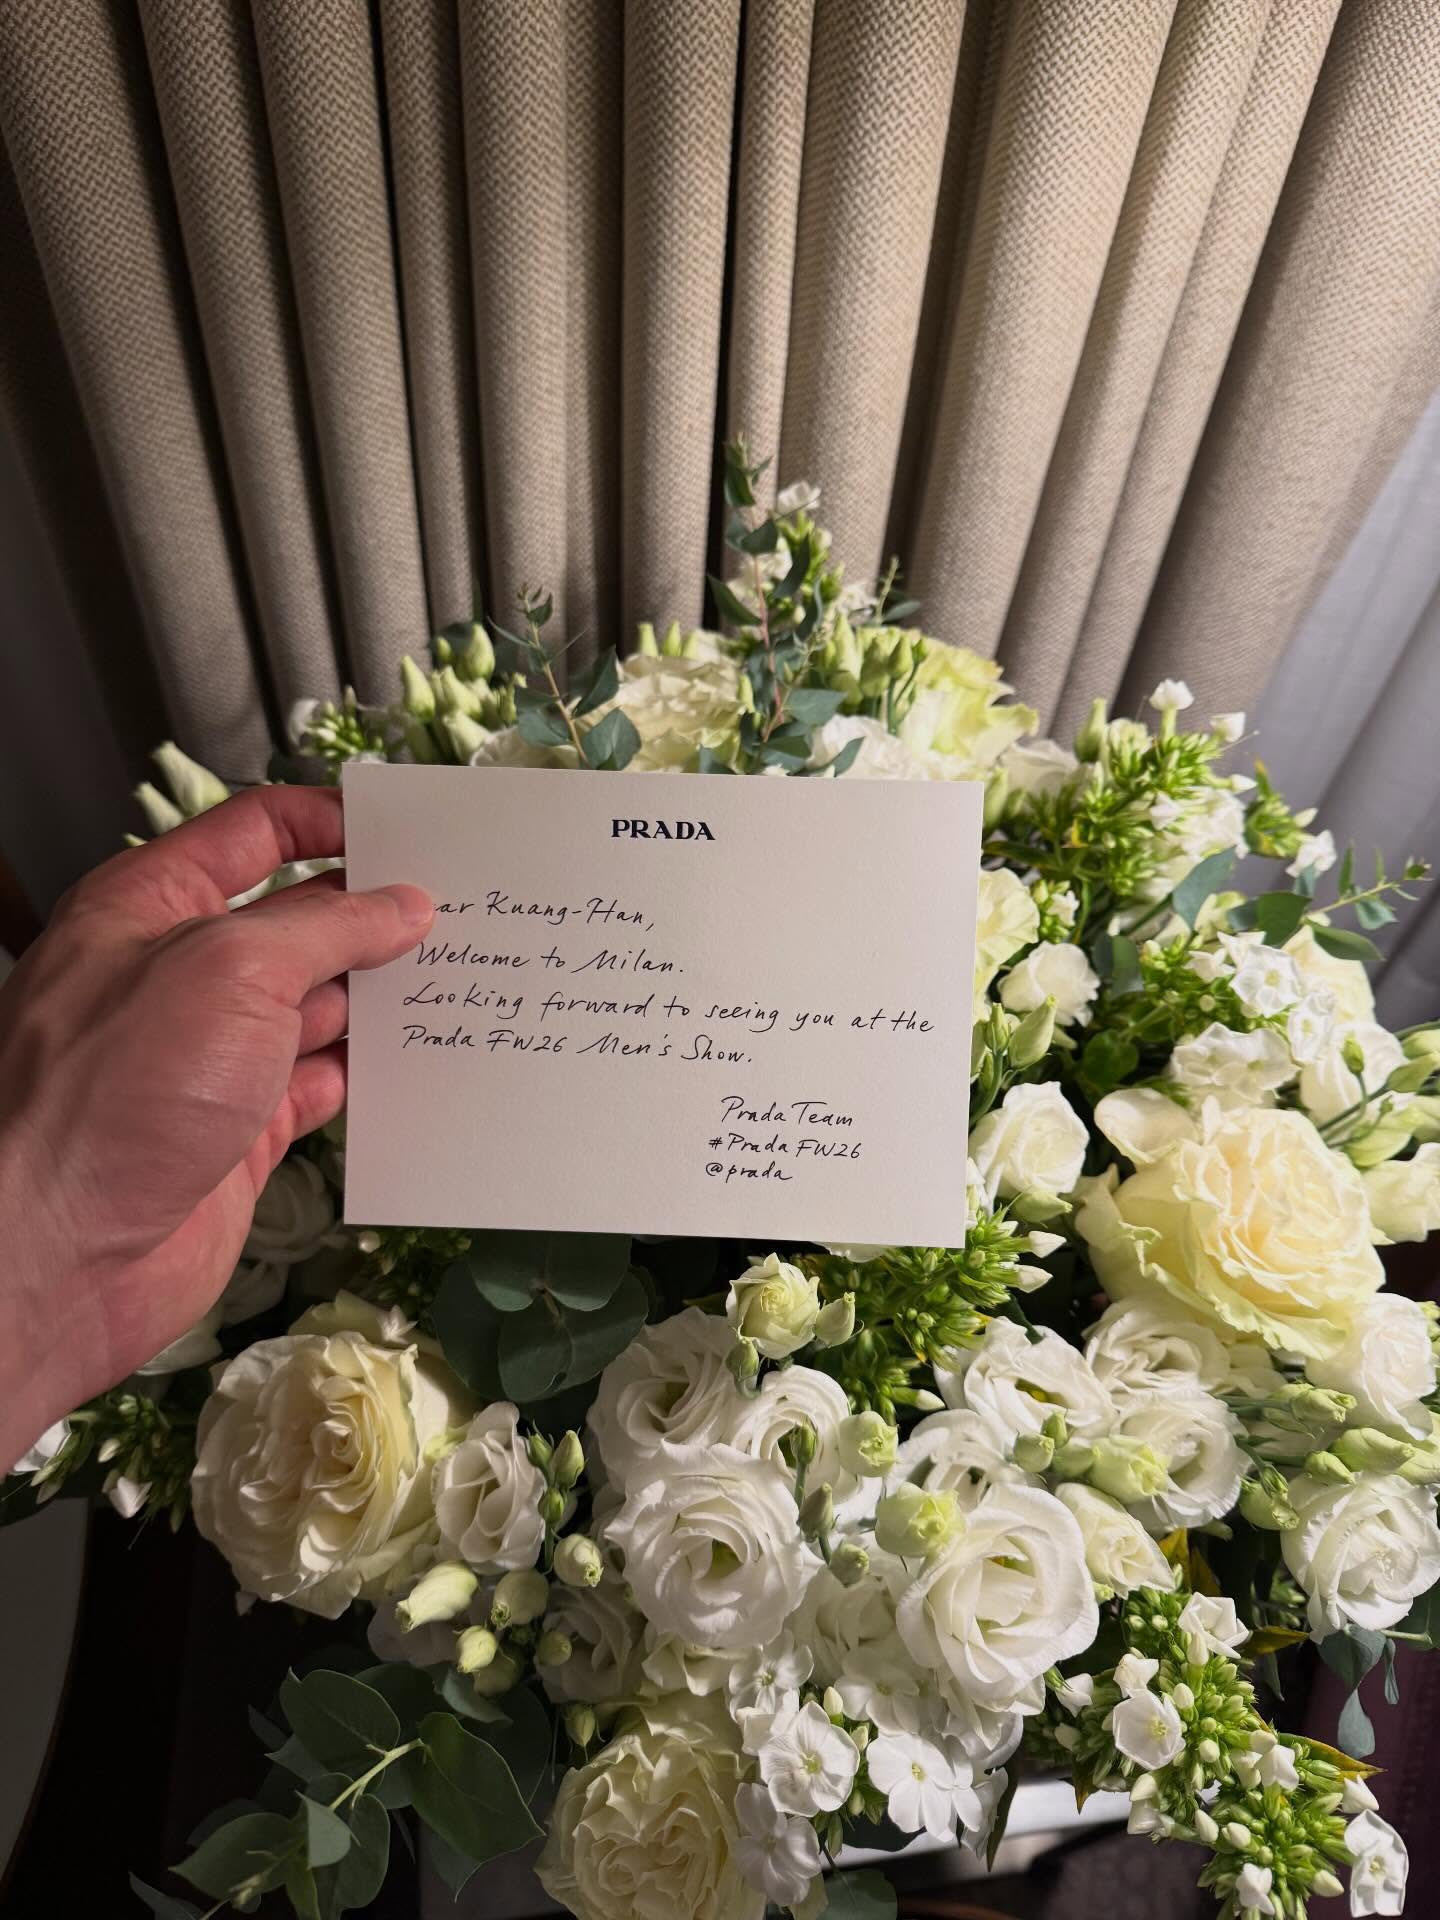 PRADA
ar Kuang-Han,
Welcome to Milan.
Looking forward to seeing you at the
Prada FW26 Men's Show.
Prada Team
#Prada FW26
@prada